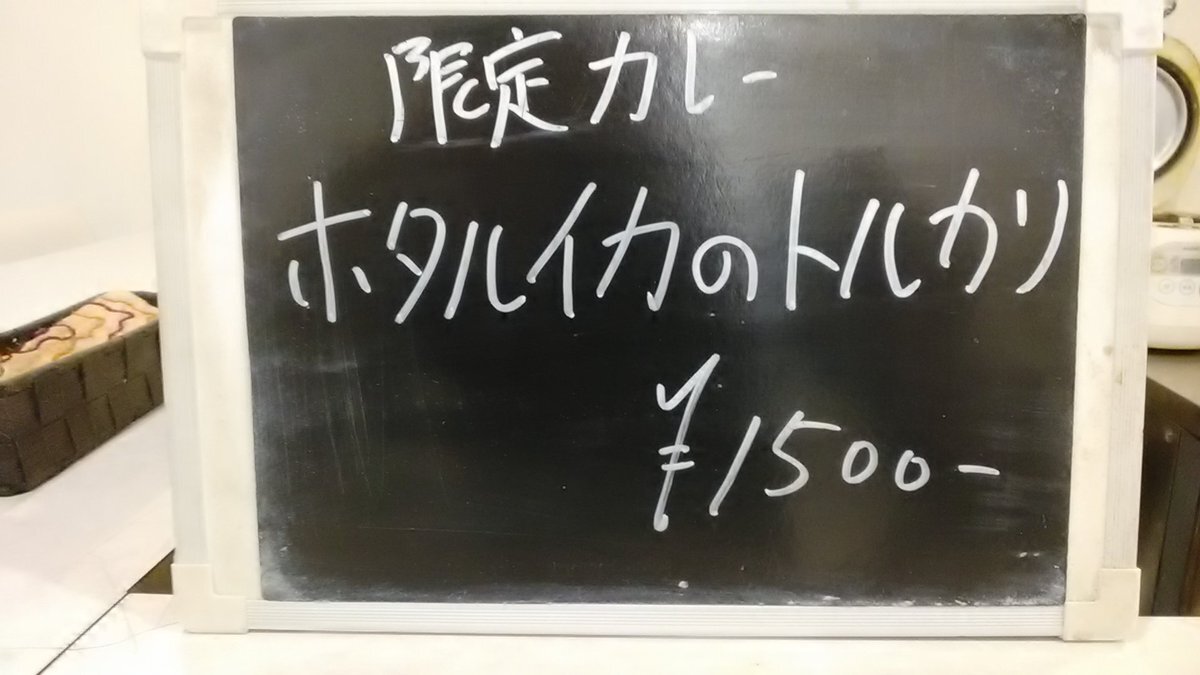 限定カレー
ホタルイカのトルカリ
¥1500-